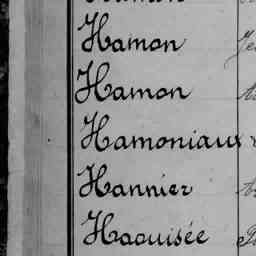 Hamon
Hamon
Hamoniaux
Hannier
Haouisée